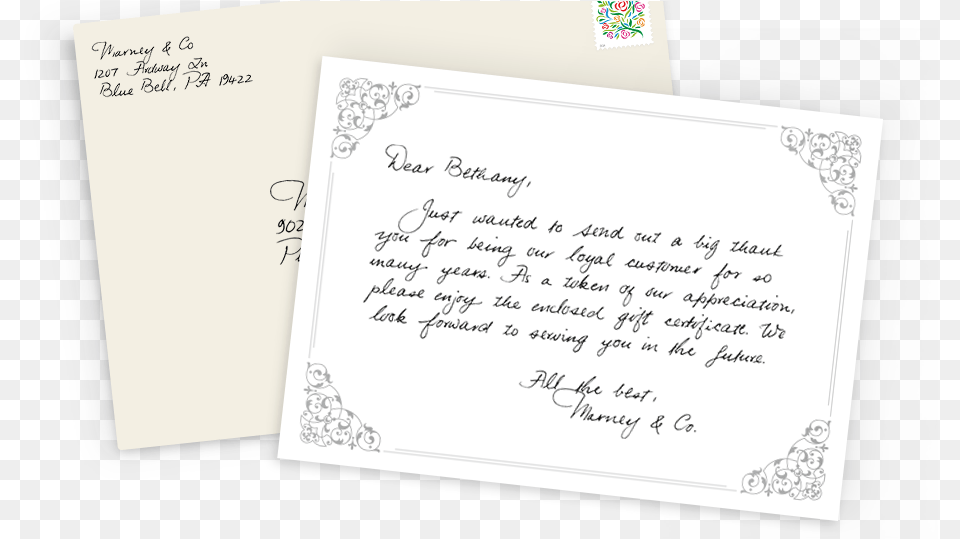 Marney & Co
1207 Ardway Ln
Blue Bell, PA 19422
902
Dear Bethany,
Just wanted to send out a big thank
you for being our loyal customer for so
many years. As a token of our appreciation,
please enjoy the enclosed gift certificate. We
look forward to serving you in the future.
All the best,
Marney & Co.